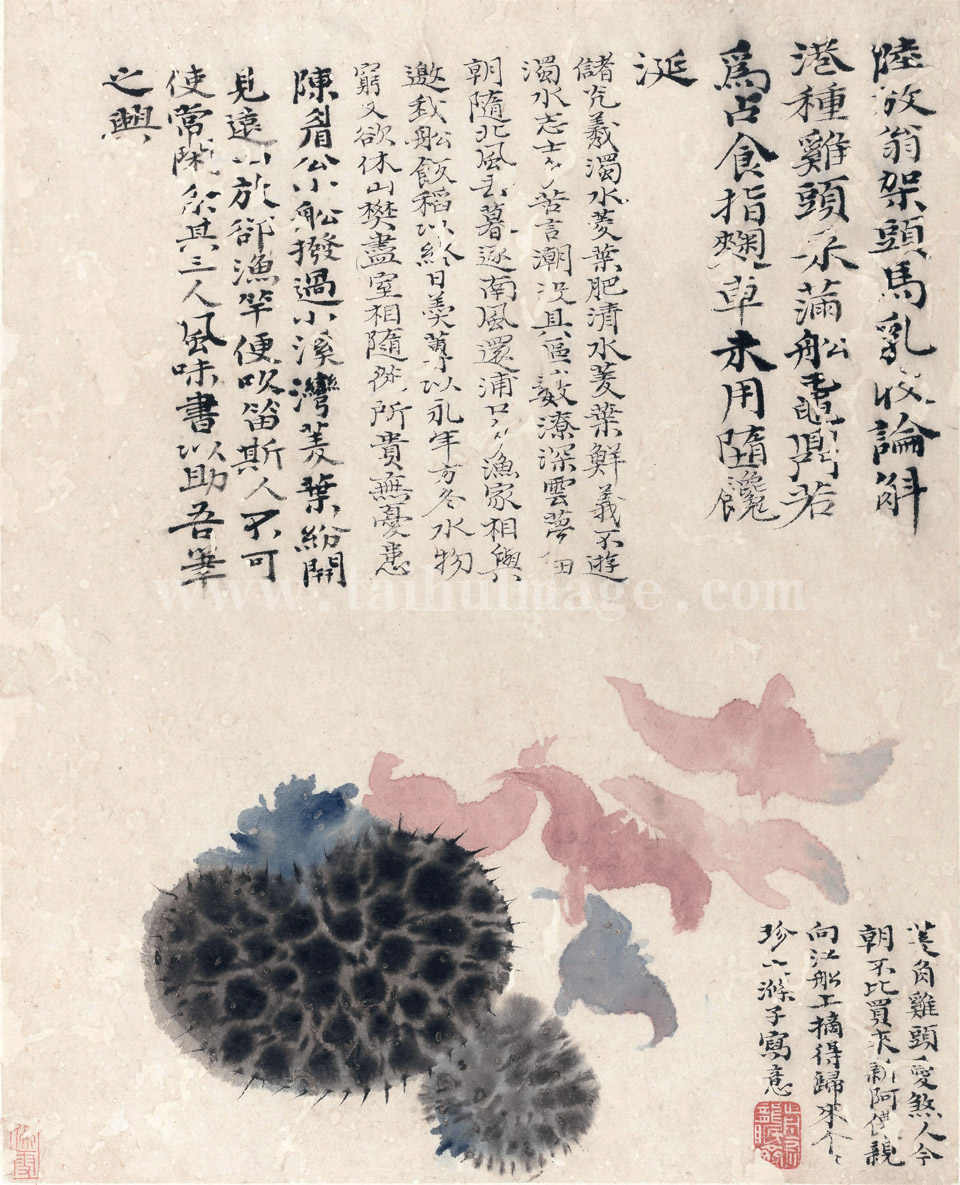 陸放翁架頭馬乳收論斛
港種雞頭采滿船黿鼎若
爲占食指麴車未用墮饞
涎
儲光羲濁水菱葉肥清水菱葉鮮義不遊
濁水志士多苦言潮沒具區藪潦深雲夢田
朝隨北風去暮逐南風還浦口多漁家相與
邀我船飯稻以終日羹蓴以永年方冬水物
窮又欲休山樊盡室相隨從所貴無憂患
陳眉公小船撥過小溪灣菱葉紛開
見遠山放卻漁竿便吹笛斯人不可
使常閑其三人風味書以助吾筆
之興
菱角雞頭愛煞人今
朝不比買來新阿儂親
向江船上摘得歸來个々
珍大滌子寫意
前有龍眠濟
www.taihuimage.com